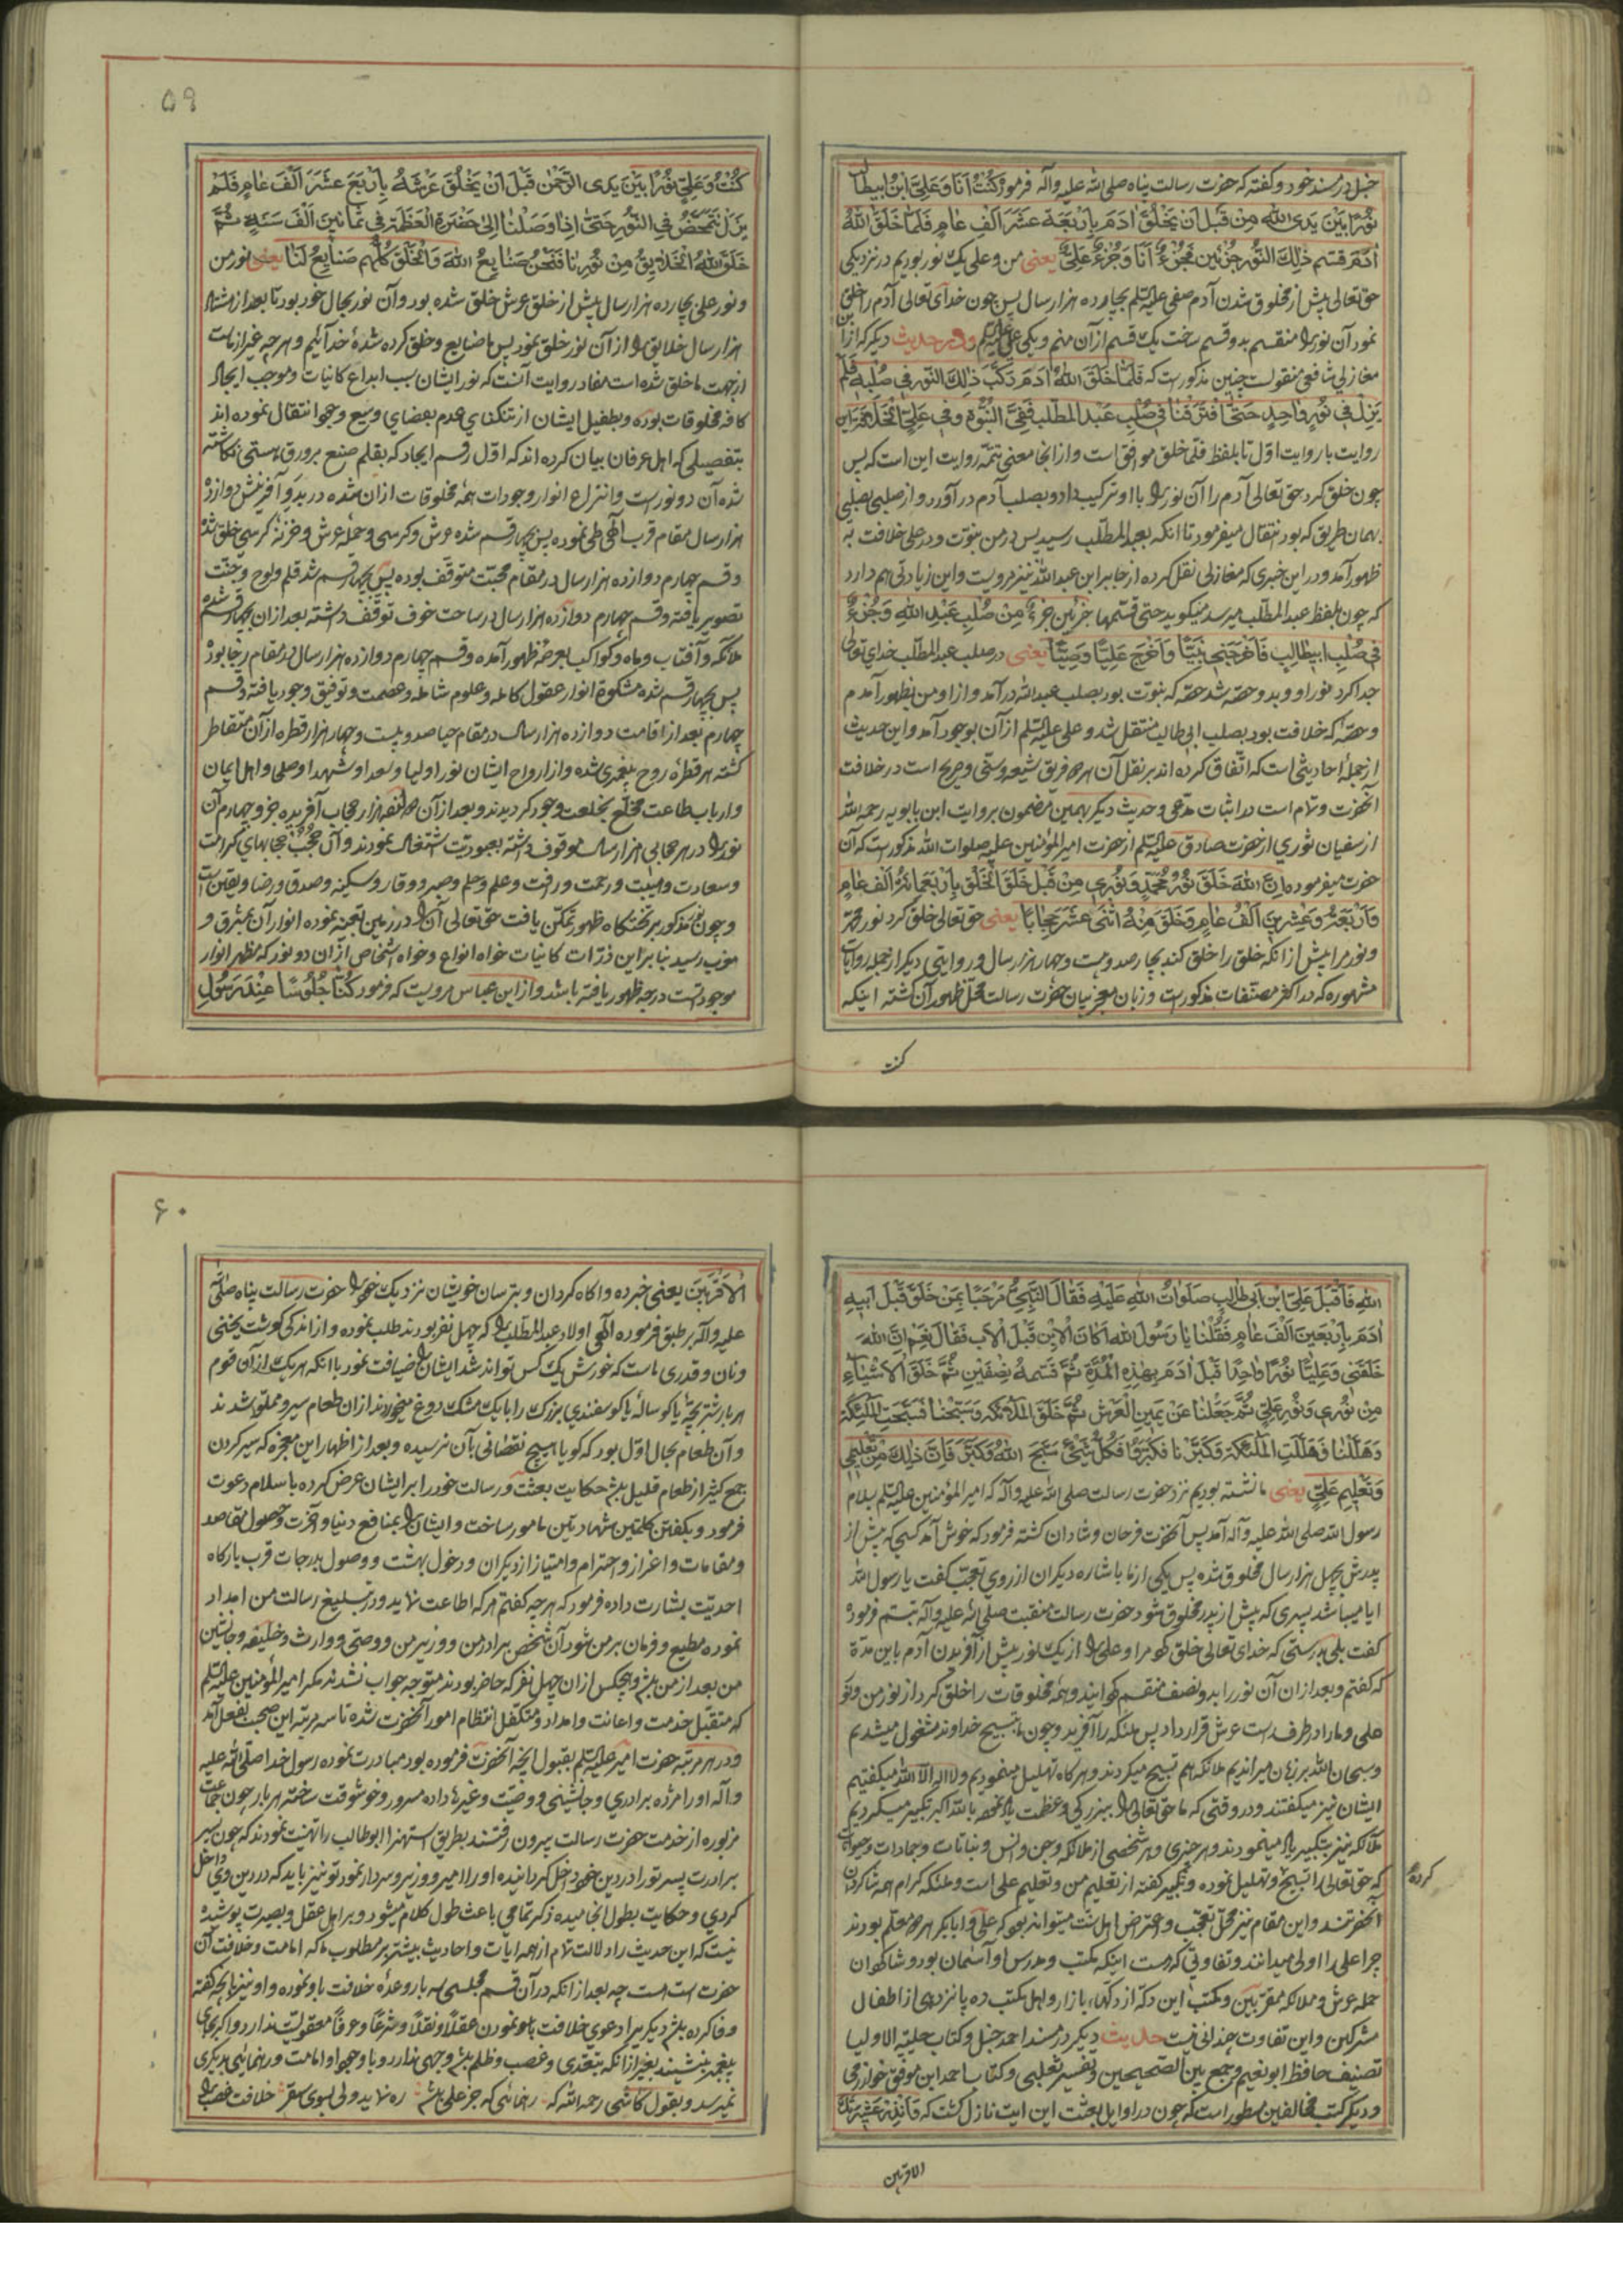 حنبل در مسند خود و گفته که حضرت رسالت پناه صلی الله علیه وآله فرمود کُنْتُ اَنَا وَعَلِیُّ ابْنُ ابیطالب
نُوْرًا بَیْنَ یَدَیِ اللهِ مِنْ قَبْلِ اَنْ یَخْلُقَ اٰدَمَ بِاَرْبَعَةَ عَشَرَ اَلْفَ عٰامٍ فَلَمّٰا خَلَقَ اللهُ
اٰدَمَ قسّم ذٰلِكَ النُّوْرَ جُزْئَیْنِ فَجُزْءٌ اَنَا وَجُزْءٌ عَلِیٌّ یعنی من و علی یک نور بودیم در نزدیکی
حق تعالی پیش از مخلوق شدن آدم صفی علیه السلم بچهارده هزار سال پس چون خدای تعالی آدم را خلق
نمود آن نور را منقسم بدو قسم ساخت یک قسم از آن منم و یکی علی علیه السلم و در حدیث دیگر که از ابن
مغازلی شافعی منقولست چنین مذکور است که فَلَمّٰا خَلَقَ اللهُ اٰدَمَ رَکَّبَ ذٰلِكَ النّورَ فی صُلْبِهِ فَلَمْ
یَزَلْ فی نُوْرٍ وٰاحِدٍ حَتّٰی افْتَرَقْنٰا فی صُلْبِ عَبْدِ الْمُطَّلِبِ فَفِیَّ النُّبُوَّةُ وَفی عَلِیٍّ الْخِلٰافَةُ این
روایت با روایت اوّل تا بلفظ فلمّا خلق موافق است و از انجا معنی تتمّه روایت این است که پس
چون خلق کرد حق تعالی آدم را آن نور را با او ترکیب داد و بصلب آدم در آورد و از صلبی بصلبی
بهمان طریق که بود انتقال میفرمود تا انکه بعبد المطّلب رسید پس در من نبوّت و در علی خلافت به
ظهور آمد و در این خبری که مغازلی نقل کرده از جابر ابن عبد الله نیز مرویست و این زیادتی هم دارد
که چون بلفظ عبد المطّلب میرسد میگوید حتی قسّمها جزئین جزءٌ مِنْ صُلْبِ عَبْدِ اللهِ وَجُزْءٌ
فی صُلْبِ ابیطٰالِبٍ فَاَخْرَجَنی نَبِیًّا وَاَخْرَجَ عَلِیًّا وَصِیًّا یعنی در صلب عبد المطّلب خدای تعالی
جدا کرد نور او و بدو حصّه شد حصّه که نبوّت بود بصلب عبد الله در آمد و از او من بظهور آمدم
و حصّه که خلافت بود بصلب ابی طالب منتقل شد و علی علیه السلم از آن بوجود آمد و این حدیث
از جملهٔ احادیثی است که اتّفاق کرده اند بر نقل آن هر دو فریق شیعه و سنّی و صریح است در خلافت
انحضرت و تمام است در اثبات مدّعی و حدیث دیگر بهمین مضمون بروایت ابن بابویه رحمه الله
از سفیان ثوری از حضرت صادق علیه السلم از حضرت امیر المؤمنین علیه صلوات الله مذکور است که آن
حضرت میفرموده اِنَّ اللهَ خَلَقَ نُوْرَ مُحَمَّدٍ وَنُوْرِی مِنْ قَبْلِ خَلْقِ الْخَلْقِ بِاَرْبَعَمِائَةِ اَلْفَ عٰامٍ
وَاَرْبَعَةٍ وَعِشْرِیْنَ اَلْفَ عٰامٍ وَخَلَقَ مِنْهُ اثْنٰی عَشَرَ حِجٰابًا یعنی حق تعالی خلق کرد نور محمّد
و نور مرا پیش از انکه خلق را خلق کند بچهار صد و بیست و چهار هزار سال و روایتی دیگر از جمله روایات
مشهوره که در اکثر مصنّفات مذکور است و زبان معجز بیان حضرت رسالت محل ظهور آن گشته اینکه
کنت
۵۹
کُنْتُ وَعَلِیٌّ نُوْرًا بَیْنَ یَدَیِ الرَّحْمٰنِ قَبْلَ اَنْ یَخْلُقَ عَرْشَهُ بِاَرْبَعَ عَشَرَ اَلْفَ عٰامٍ فَلَمْ
یَزَلْ نَتَمَحَّضُ فِی النُّوْرِ حَتّٰی اِذٰا وَصَلْنٰا اِلٰی حَضْرَةِ الْعَظَمَةِ فی ثَمٰانینَ اَلْفَ سَنَةٍ ثُمَّ
خَلَقَ اللهُ الْخَلٰائِقَ مِنْ نُوْرِنٰا فَنَحْنُ صَنٰایِعُ اللهِ وَالْخَلْقُ کُلُّهُمْ صَنٰایِعُ لَنٰا یعنی نور من
و نور علی بچهارده هزار سال پیش از خلق عرش خلق شده بود و آن نور بحال خود بود تا بعد از هشتاد
هزار سال خلایق را از آن نور خلق نمود پس ما صنایع و خلق کرده شدهٔ خدائیم و هر چه غیر از ماست
از جهت ما خلق شده است مفاد روایت آنست که نور ایشان سبب ابداع کاینات و موجب ایجاد
کافه مخلوقات بوده و بطفیل ایشان از تنگنای عدم بفضای وسیع وجود انتقال نموده اند
بتفصیلی که اهل عرفان بیان کرده اند که اوّل رقم ایجاد که بقلم صنع بر ورق هستی نگاشته
شده آن دو نور است و انتزاع انوار وجودات همهٔ مخلوقات از ان شده در بدو آفرینش دوازده
هزار سال مقام قرب آلهی طی نموده پس چهار قسم شده عرش و کرسی و حملهٔ عرش و خزنهٔ کرسی خلق شد
و قسم چهارم دوازده هزار سال در مقام محبّت متوقف بوده پس بچهار قسم شد قلم و لوح و جنّت
تصویر یافته و قسم چهارم دوازده هزار سال در ساحت خوف توقّف داشته بعد از ان بچهار قسم شده
ملائکه و آفتاب و ماه و کواکب بعرصهٔ ظهور آمده و قسم چهارم دوازده هزار سال در مقام رجا بوده
پس بچهار قسم شده مشکوة انوار عقول کامله و علوم شامله و عصمت و توفیق وجود یافته و قسم
چهارم بعد از اقامت دوازده هزار سال در مقام حیا صد و بیست و چهار هزار قطره از آن متقاطر
گشته هر قطره روح پیغمبری شده و از ارواح ایشان نور اولیا و سعدا و شهدا و صلحا و اهل ایمان
و ارباب طاعت مخلّع بخلعت وجود گردیدند و بعد از آن دوانزده هزار حجاب آفریده جزو چهارم آن
نور را در هر حجابی هزار سال موقوف داشته بعبودیّت اشتغال نمودند و آن حُجُبْ حجابهای کرامت
و سعادت و هیبت و رحمت و رأفت و علم و حلم و صبر و وقار و سکینه و صدق و رضا و یقین است
و چون نور مذکور بر تختگاه ظهور تمکّن یافت حق تعالی آن را در زمین تعبیه نموده انوار آن بمشرق و
مغرب رسید بنابراین ذرّات کاینات خواه انواع و خواه اشخاص از ان دو نور که مظهر انوار
موجودیّتست درجه ظهور یافته باشد و از ابن عباس مرویست که فرمود کُنّٰا جُلُوْسًا عِنْدَ رَسُوْلِ
اللهِ فَاَقْبَلَ عَلِیُّ ابْنُ اَبی طٰالِبٍ صَلَوٰاتُ اللهِ عَلَیْهِ فَقٰالَ النَّبِیُّ مَرْحَبًا بِمَنْ خُلِقَ قَبْلَ اَبیهِ
اٰدَمَ بِاَرْبَعینَ اَلْفَ عٰامٍ فَقُلْنٰا یٰا رَسُوْلَ اللهِ اَکٰانَ الْاِبْنُ قَبْلَ الْاَبِ فَقٰالَ نَعَمْ اِنَّ اللهَ
خَلَقَنی وَعَلِیًّا نُوْرًا وٰاحِدًا قَبْلَ اٰدَمَ بِهٰذِهِ الْمُدَّةِ ثُمَّ قَسَمَهُ نِصْفَیْنِ ثُمَّ خَلَقَ الْاَشْیٰاءَ
مِنْ نُوْری وَنُوْرِ عَلِیٍّ ثُمَّ جَعَلَنٰا عَنْ یَمینِ الْعَرْشِ ثُمَّ خَلَقَ الْمَلٰائِکَةَ وَسَبَّحْنٰا فَسَبَّحَتِ الْمَلٰئِکَةُ
وَهَلَّلْنٰا وَهَلَّلَتِ الْمَلٰئِکَةُ وَکَبَّرْنٰا فَکَبَّرُوْا فَکُلُّ شَیْءٍ سَبَّحَ اللهَ وَکَبَّرَ فَاِنَّ ذٰلِكَ مِنْ تَعْلیمی
وَتَعْلیمِ عَلِیٍّ یعنی ما نشسته بودیم نزد حضرت رسالت صلی الله علیه وآله که امیر المؤمنین علیه السلم بسلام
رسول الله صلی الله علیه وآله آمد پس آنحضرت فرحان و شادان گشته فرمود که خوش آمد کسی که پیش از
پدرش بچهل هزار سال مخلوق شده پس یکی از ما باشاره دیگران از روی تعجّب گفت یا رسول الله
ایا میباشد پسری که پیش از پدر مخلوق شود حضرت رسالت منقبت صلی الله علیه وآله تبسّم فرموده
گفت بلی بدرستی که خدای تعالی خلق کرد مرا و علی را از یک نور پیش از آفریدن آدم باین مدّة
که گفتم و بعد از ان آن نور را بدو نصف منقسم گردانید و همهٔ مخلوقات را خلق کرد از نور من و نور
علی و ما را در طرف راست عرش قرار داد پس ملئکه را آفرید و چون ما بتسبیح خداوند مشغول میشدیم
و سبحان الله بر زبان میراندیم ملائکه هم تسبیح میکردند و هر کاه تهلیل مینمودیم و لا اله الا الله میگفتیم
ایشان نیز میگفتند و در وقتی که ما حق تعالی را ببزرگی و عظمت یاد نموده بالله اکبر تکبیر میکردیم
ملائکه نیز بتکبیر یاد مینمودند و هر چیزی و هر شخصی از ملائکه و جن و انس و نباتات و جمادات و حیوانات
که حق تعالی را تسبیح و تهلیل نموده و تکبیر گفته از تعلیم من و تعلیم علی است و ملئکه کرام همه شاگردان
کرده
آنحضرتند و این مقام نیز محلّ تعجّب و اعتراض اهل سنّت میتواند بود که علی و ابا بکر هر دو معلّم بودند
چرا علی را اولی میدانند و تفاوتی که هست اینکه مکتب و مدرس او آسمان بود و شاگردان
حمله عرش و ملائکه مقرّبین و مکتب این دکّه از دکّهای بازار و اهل مکتب ده پانزده‌ی از اطفال
مشرکین و این تفاوت چندانی نیست حدیث دیگر در مسند احمد حنبل و کتاب حلیة الاولیا
تصنیف حافظ ابو نعیم و جمع بین الصّحیحین و تفسیر ثعلبی و کتاب احمد ابن موفّق خوارزمی
و دیگر کتب مخالفین مسطور است که چون در اوایل بعثت این ایت نازل گشت که وَاَنْذِرْ عَشیرَتَكَ
الاقربین
۶۰
الْاَقْرَبینَ یعنی خبر ده و اکاه گردان و بترسان خویشان نزدیک خود را حضرت رسالت پناه صلّی الله
علیه وآله بر طبق فرموده آلهی اولاد عبد المطّلب را که چهل نفر بودند طلب نموده و از اندکی گوشت پختنی
و نان و قدری ماست که خورش یک کس تواند شد ایشان را ضیافت نمود با انکه هر یک از آن قوم
هر بار شتر بچهٔ یا گوسالهٔ یا گوسفندی بزرگ را با یک مشک دوغ میخوردند از ان طعام سیر و مملّق شدند
و آن طعام بحال اوّل بود که گویا هیچ نقصانی بآن نرسیده و بعد از اظهار این معجزه که سیر کردن
جمع کثیر از طعام قلیل باشد حکایت بعثت و رسالت خود را بر ایشان عرض کرده باسلام دعوت
فرمود و بگفتن کلمتین شهادتین مامور ساخت و ایشان را بمنافع دنیا و آخرت و حصول مقاصد
و مقامات و اعزاز و احترام و امتیاز از دیگران و دخول بهشت و وصول بدرجات قرب بارگاه
احدیّت بشارت داده فرمود که هر چه گفتم هر که اطاعت نماید و در تبلیغ رسالت من امداد
نموده مطیع و فرمان بر من شود آن شخص برادر من و وزیر من و وصی و وارث و خلیفه و جانشین
من بعد از من باشد هیچکس از ان چهل نفر که حاضر بودند متوجه جواب نشدند مگر امیر المؤمنین علیه السلم
که متقبّل خدمت و اعانت و امداد و متکفّل انتظام امور آنحضرت شده تا سه مرتبه این صحبت بفعل آمد
و در هر مرتبه حضرت امیر علیه السلم بقبول آنچه آنحضرت فرموده بود مبادرت نموده رسول خدا صلّی الله علیه
وآله او را مژده برادری و جانشینی و وصیّت و غیرها داده مسرور و خوشوقت ساخته هر بار چون جماعت
مزبوره از خدمت حضرت رسالت بیرون رفتند بطریق استهزا ابو طالب را تهنیت نمودند که چون پسر
برادرت پسر تو را در دین خود داخل گردانیده او را امیر و وزیر و سردار نمود تو نیز باید که در دین وی داخل
گردی و حکایت بطول انجامیده ذکر تمامی باعث طول کلام میشود و بر اهل عقل و بصیرت پوشیده
نیست که این حدیث را دلالت تمام از همه ایات و احادیث بیشتر بر مطلوب ما که امامت و خلافت آن
حضرت است هست چه بعد از انکه در آن قسم مجلسی سه بار وعده خلافت باو نموده و او نیز بآنچه گفته
وفا کرده باشد دیگر برا دعوی خلافت باو نمودن عقلًا و نقلًا و شرعًا و عرفًا معقولیّت ندارد و اگر بجای
پیغمبر بنشیند بغیر از انکه بتعدّی و غصب و ظلم باشد وجهی ندارد و با وجود او امامت و رهنمائی بدیگری
نمیرسد و بقول کاشی رحمه الله که رهنمائی که جز علی باشد ره نماید ولی بسوی سقر خلافت غصب را